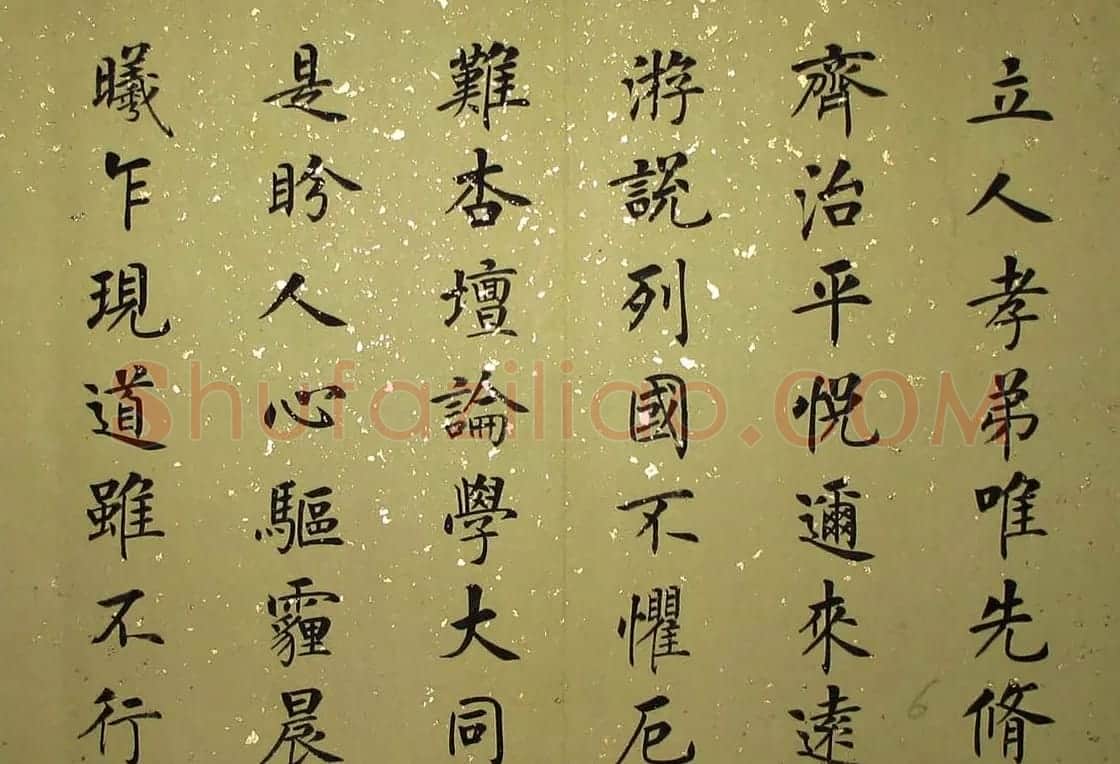 立人孝弟唯先脩
齊治平悅邇來遠
游說列國不懼厄
難杏壇論學大同
是盻人心驅霾晨
曦乍現道雖不行
Shufaziliao.COM
6